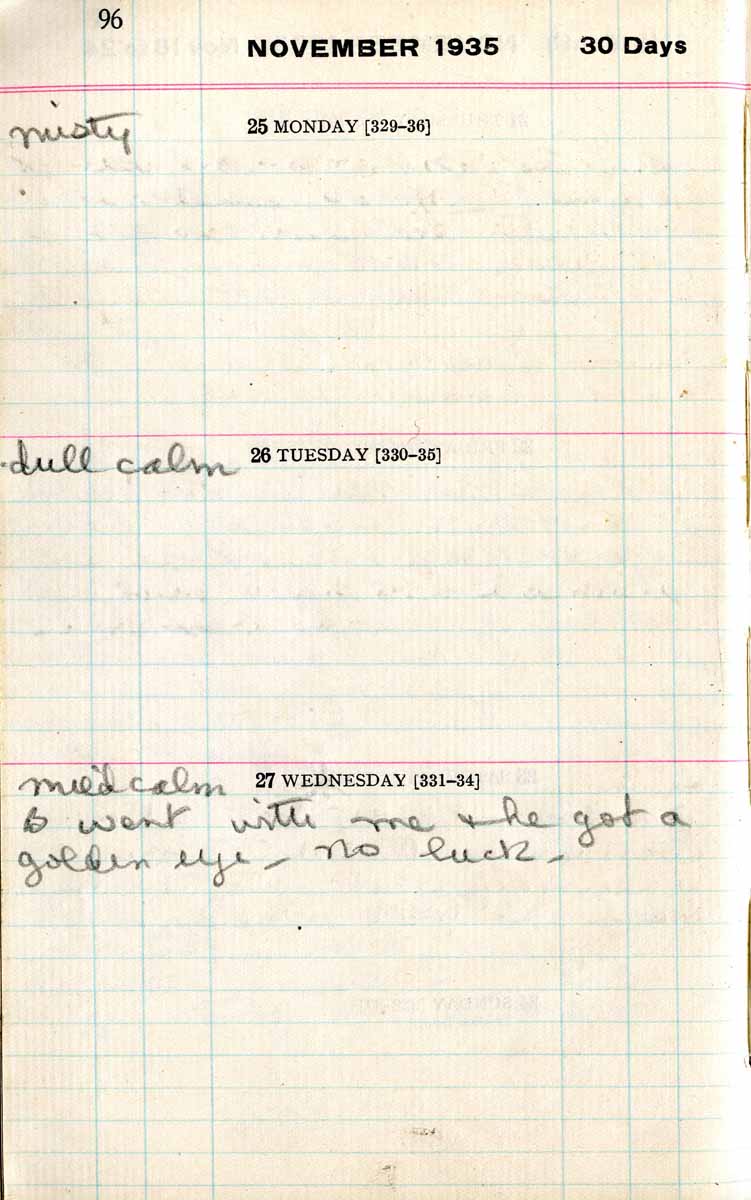 96
NOVEMBER 1935 30 Days
misty 25 MONDAY [329–36]
dull calm 26 TUESDAY [330–35]
mild calm 27 WEDNESDAY [331–34]
B went with me & he got a
golden eye – no luck –